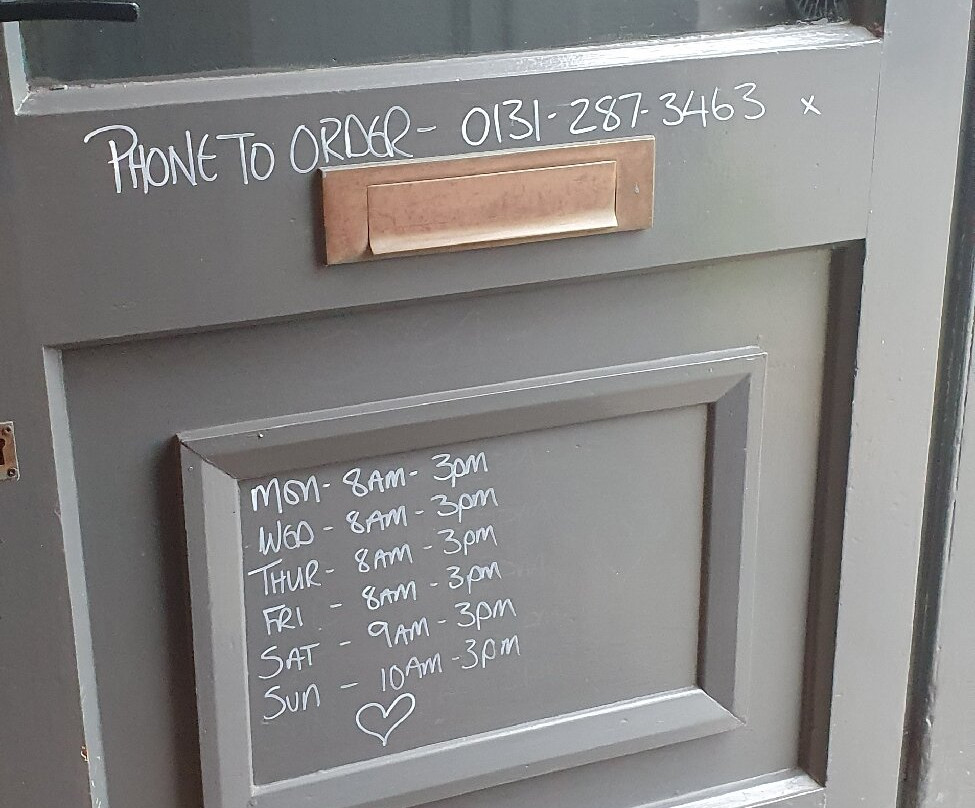 PHONE TO ORDER - 0131-287-3463 x
MON - 8AM - 3PM
WED - 8AM - 3PM
THUR - 8AM - 3PM
FRI - 8AM - 3PM
SAT - 9AM - 3PM
SUN - 10AM - 3PM